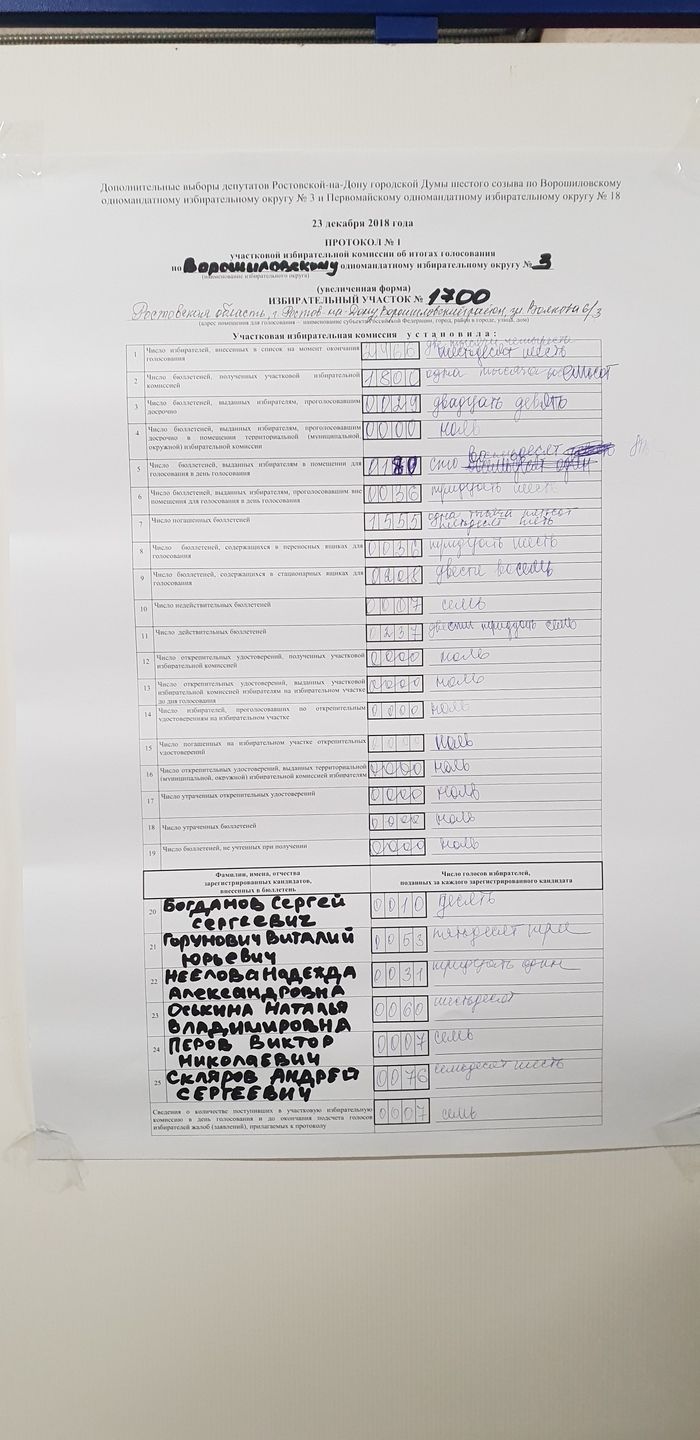 Дополнительные выборы депутатов Ростовской-на-Дону городской Думы шестого созыва по Ворошиловскому
одномандатному избирательному округу № 3 и Первомайскому одномандатному избирательному округу № 18
23 декабря 2018 года
ПРОТОКОЛ № 1
участковой избирательной комиссии об итогах голосования
по Ворошиловскому одномандатному избирательному округу № 3
(наименование избирательного округа)
(увеличенная форма)
ИЗБИРАТЕЛЬНЫЙ УЧАСТОК № 1700
Ростовская область, г. Ростов-на-Дону, Ворошиловский район, ул Волкова 6/3
(адрес помещения для голосования – наименование субъекта Российской Федерации, город, район в городе, улица, дом)
Участковая избирательная комиссия установила:
1 Число избирателей, внесенных в список на момент окончания
голосования
шестьдесят шесть
2 Число бюллетеней, полученных участковой избирательной
комиссией
1800 одна тысяча
3 Число бюллетеней, выданных избирателям, проголосовавшим
досрочно
0029 двадцать девять
4 Число бюллетеней, выданных избирателям, проголосовавшим
досрочно в помещении территориальной (муниципальной,
окружной) избирательной комиссии
0000 ноль
5 Число бюллетеней, выданных избирателям в помещении для
голосования в день голосования
0180 сто восемьдесят
6 Число бюллетеней, выданных избирателям, проголосовавшим вне
помещения для голосования в день голосования
0036 тридцать шесть
7 Число погашенных бюллетеней
1555 одна тысяча пятьсот
пятьдесят пять
8 Число бюллетеней, содержащихся в переносных ящиках для
голосования
0036 тридцать шесть
9 Число бюллетеней, содержащихся в стационарных ящиках для
голосования
0208 двести восемь
10 Число недействительных бюллетеней
0007 семь
11 Число действительных бюллетеней
0237 двести тридцать семь
12 Число открепительных удостоверений, полученных участковой
избирательной комиссией
0000 ноль
13 Число открепительных удостоверений, выданных участковой
избирательной комиссией избирателям на избирательном участке
до дня голосования
0000 ноль
14 Число избирателей, проголосовавших по открепительным
удостоверениям на избирательном участке
0000 ноль
15 Число погашенных на избирательном участке открепительных
удостоверений
0000 ноль
16 Число открепительных удостоверений, выданных территориальной
(муниципальной, окружной) избирательной комиссией избирателям
0000 ноль
17 Число утраченных открепительных удостоверений
0000 ноль
18 Число утраченных бюллетеней
0000 ноль
19 Число бюллетеней, не учтенных при получении
0000 ноль
Фамилии, имена, отчества
зарегистрированных кандидатов,
внесенных в бюллетень
Число голосов избирателей,
поданных за каждого зарегистрированного кандидата
20 Богданов Сергей
Сергеевич
0010 десять
21 Горунович Виталий
Юрьевич
0053 пятьдесят три
22 Неелова Надежда
Александровна
0031 тридцать один
23 Оськина Наталья
Владимировна
0060 шестьдесят
24 Перов Виктор
Николаевич
0007 семь
25 Скляров Андрей
Сергеевич
0076 семьдесят шесть
Сведения о количестве поступивших в участковую избирательную
комиссию в день голосования и до окончания подсчета голосов
избирателей жалоб (заявлений), прилагаемых к протоколу
0007 семь